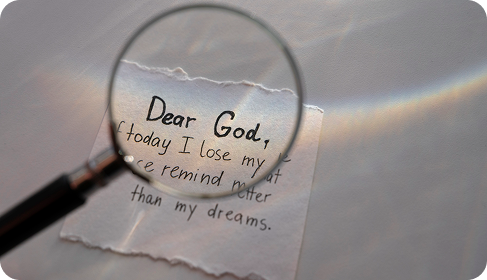 Dear God,
today I lose my
ce remind
than my dreams.